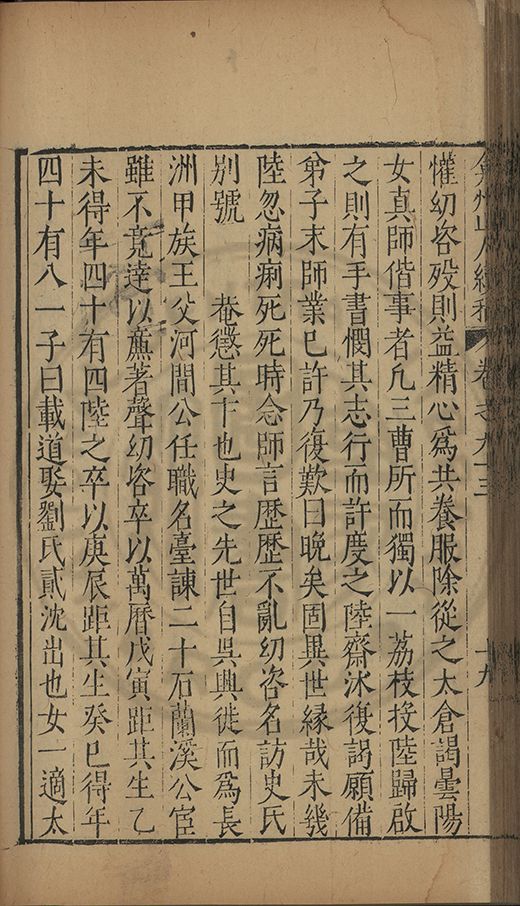 弇州山人續稿 卷之九十三 十九
懽幼咨歿則益精心爲共養服除從之太倉謁曇陽
女真師偕事者凡三曹所而獨以一荔枝投陸歸啟
之則有手書憫其志行而許度之陸齋沐復謁願備
弟子末師業已許乃復歎曰晚矣固異世縁哉未幾
陸忽病痢死死時念師言歷歷不亂幼咨名訪史氏
別號 菴懲其下也史之先世自吳興徙而爲長
洲甲族王父河間公任職名臺諫二十石蘭溪公宦
雖不竟達以㢘著聲幼咨卒以萬曆戊寅距其生乙
未得年四十有四陸之卒以庚辰距其生癸巳得年
四十有八一子曰載道娶劉氏貳沈出也女一適太